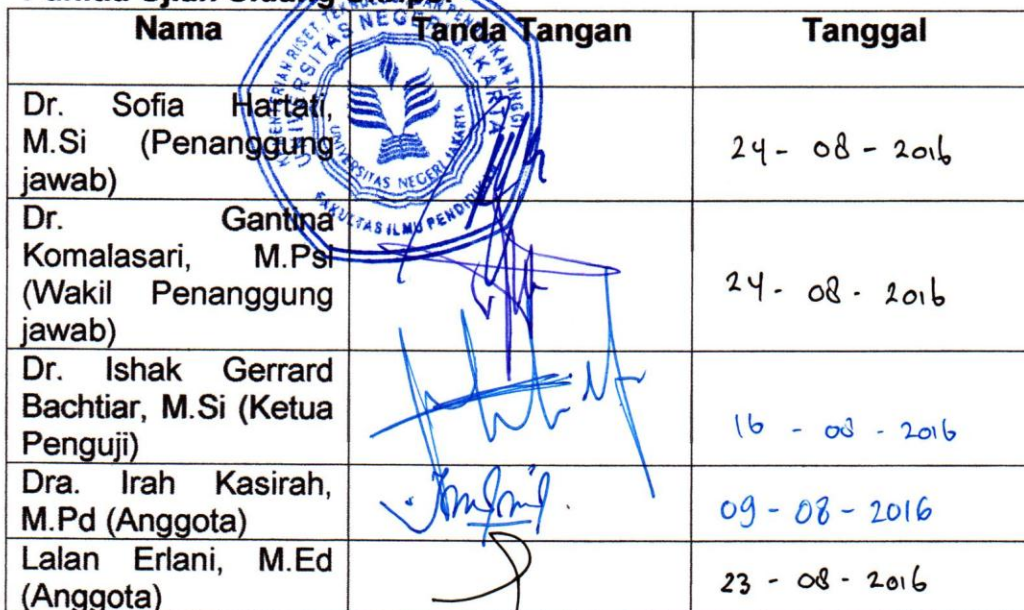 Nama Tanda Tangan Tanggal
Dr. Sofia Hartati,
M.Si (Penanggung
jawab)
24 - 08 - 2016
Dr. Gantina
Komalasari, M.Psi
(Wakil Penanggung
jawab)
24 - 08 - 2016
Dr. Ishak Gerrard
Bachtiar, M.Si (Ketua
Penguji)
16 - 08 - 2016
Dra. Irah Kasirah,
M.Pd (Anggota)
09 - 08 - 2016
Lalan Erlani, M.Ed
(Anggota)
23 - 08 - 2016
UNIVERSITAS NEGERI JAKARTA
UNIVERSITAS NEGERI JAKARTA
FAKULTAS ILMU PENDIDIKAN